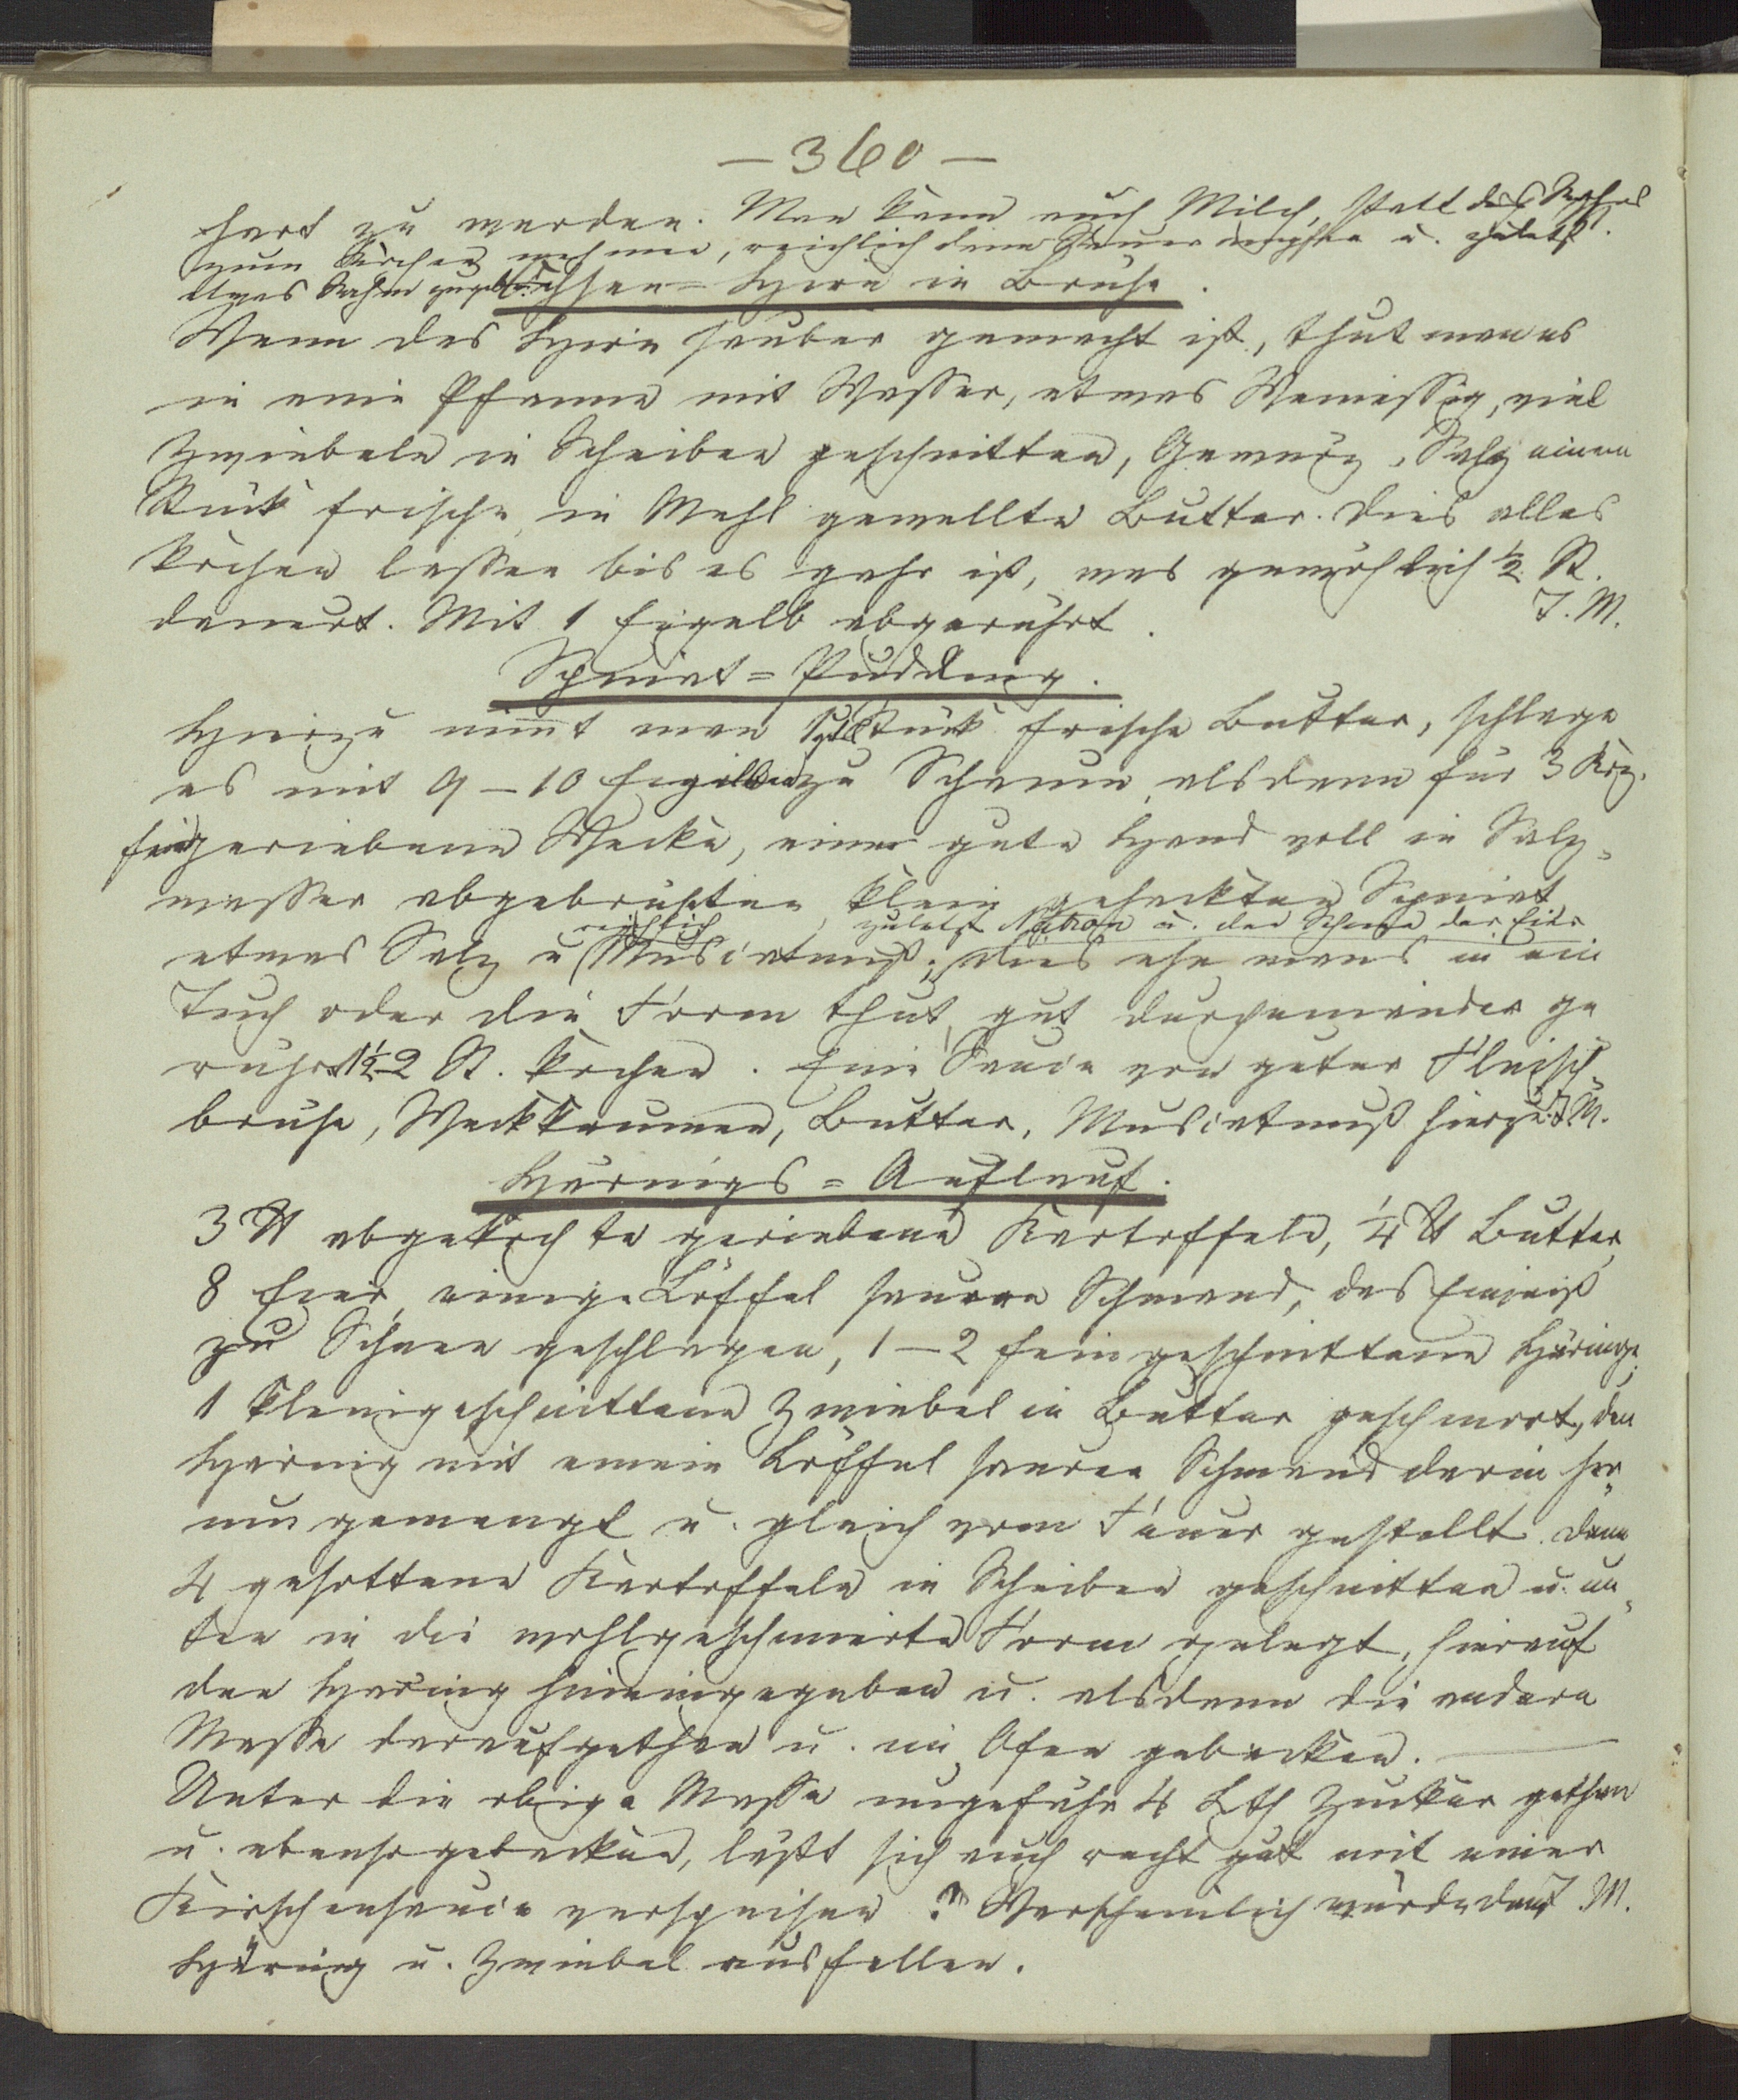 — 360 —
hart zu werden. Man kann auch Milch, statt des
zum Kochen nehmen, reichlich dann u. zuletzt
etwas Rahm
Ochsen=Hirn in Brühe.
Wenn das Hirn sauber gemacht ist, thut man es
in eine Pfanne mit Wasser, etwas Weinessig, viel
Zwiebeln in Scheiben geschnitten, Gewürz, Salz einem
Stück frische, in Mehl gewellte Butter. Dies alles
kochen lassen bis es gahr ist, was gewöhnlich ½ St.
dauert. Mit 1 Eigelb abgerührt. J. M.
Spinat=Pudding.
Hierzu nim̅t man Stück frische Butter, schlage
es mit 9–10 Eigelben zu Schaum, alsdann für 3 Krz.
fein geriebene Wecke, eine gute Hand voll in Salz=
wasser abgebrühten, klein gehackten Spinat,
reichlich zuletzt Natron u. den Schnee der Eier
etwas Salz u Muscatnuß; dies ehe mans in ein
Tuch oder die Form thut, gut durcheinander ge
rührt 1½-2 St. kochen. Eine Sauce von guter Fleisch=
brühe, Weckkrumen, Butter, Muscatnuß hierzu. J. M.
Härings=Auflauf.
3 ℔ abgekochte geriebene Kartoffeln, ¼ ℔ Butter,
8 Eier, einige Löffel sauren Schmand, das Eiweiß
zu Schnee geschlagen, 1–2 fein geschnittene Häringe,
1 kleingeschnittene Zwiebel in Butter geschmort, den
Häring mit einem Löffel sauren Schmand darin her=
um gemengt u. gleich vom Feuer gestellt. Dann
4 gesottene Kartoffeln in Scheiben geschnitten u. un=
ten in die wohlgeschmierte Form gelegt, hierauf
den Häring hineingegeben u. alsdann die andere
Masse daraufgethan u. im Ofen gebacken.
Unter die obige Masse ungefähr 4 Lth Zucker gethan
u. ebenso gebacken, läßt sich auch recht gut mit einer
Kirschensauce verspeisen. ? Warscheinlich würde dann J. M.
Häring u. Zwiebel ausfallen.